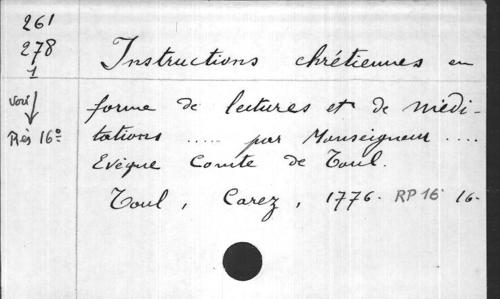 261
278
1
Instructions chrétiennes en
voir
forme de lectures et de médi-
Rés 16º
tations ..... par Monseigneur ....
Evêque Comte de Toul.
Toul, Carez, 1776. RP 16 16-